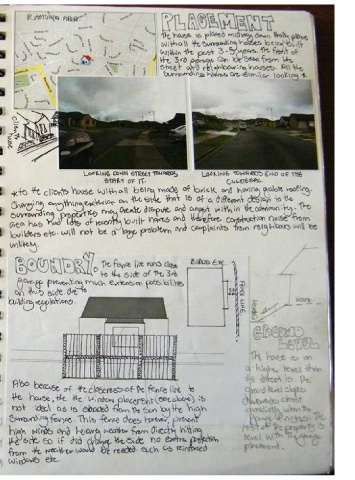 PLACEMENT
the house is placed midway down Molly place
with all the surrounding houses being built
within the past 3-5 years. The front of
the 3rd garage can be seen from the
street and neighbouring houses. All the
surrounding homes are similar looking *
Clients house
LOOKING DOWN STREET TOWARDS
START OF IT.
LOOKING TOWARDS END OF THE
CULDESAC.
* to the clients house with all being made of brick and having gable roofing.
Changing anything exterior on the site that is of a different design to the
surrounding properties may create dispute and upset within the community. The
area has had lots of recently built homes and therefore construction noise from
builders etc. will not be a large problem and complaints from neighbours will be
unlikely.
BOUNDRY.
The fence line runs close
to the side of the 3rd
garage preventing much extension possibilities
on this side due to
building regulations.
BIRDS EYE.
FENCE LINE
GROUND
LEVEL
The house is on
a higher level than
the street is. The
ground level slopes
downwards
level with the
placement.
Also because of the closeness of the fence line to
the house, the window placement (see above) is
not ideal as is shaded from the sun by the high
surrounding fence. This fence does however prevent
high winds and heavy weather from directly hitting
the site so if I did change the side no extra protection
from the weather would be needed such as reinforced
windows etc.